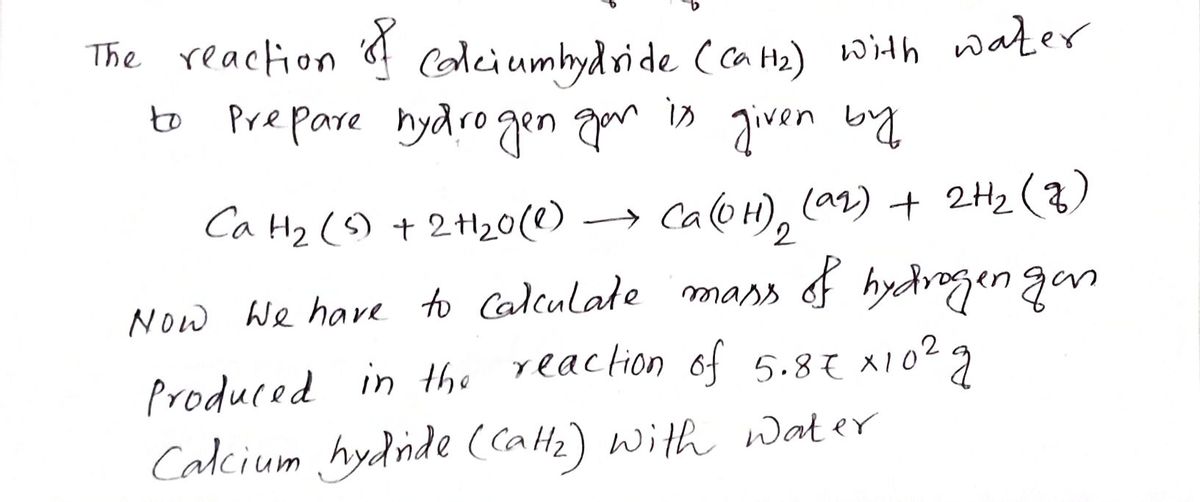 The reaction of Calciumhydride (CaH₂) with water
to Prepare hydrogen gas is given by
CaH₂(s) + 2H₂O(l) → Ca(OH)₂(aq) + 2H₂(g)
Now We have to Calculate mass of hydrogen gas
Produced in the reaction of ×10² g
Calcium hydride (CaH₂) with water